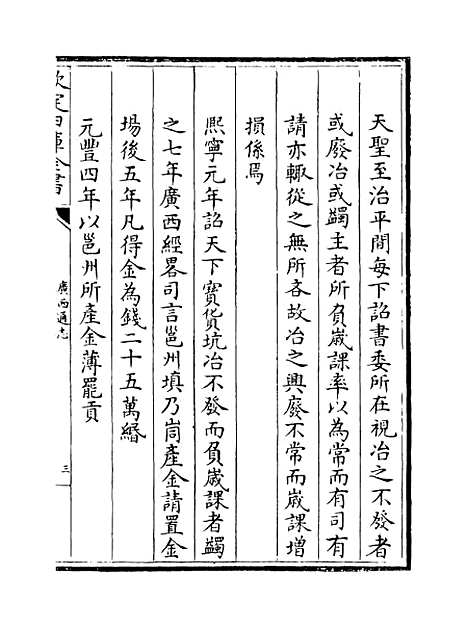 天聖至治平間每下詔書委所在視冶之不發者
或廢冶或蠲主者所負歲課率以為常而有司有
請亦輙從之無所吝故冶之興廢不常而歲課增
損係焉
熙寧元年詔天下寶貨坑冶不發而負歲課者蠲
之七年廣西經畧司言邕州填乃峝產金請置金
場後五年凡得金為錢二十五萬緡
元豐四年以邕州所產金薄罷貢
欽定四庫全書
廣西通志
三